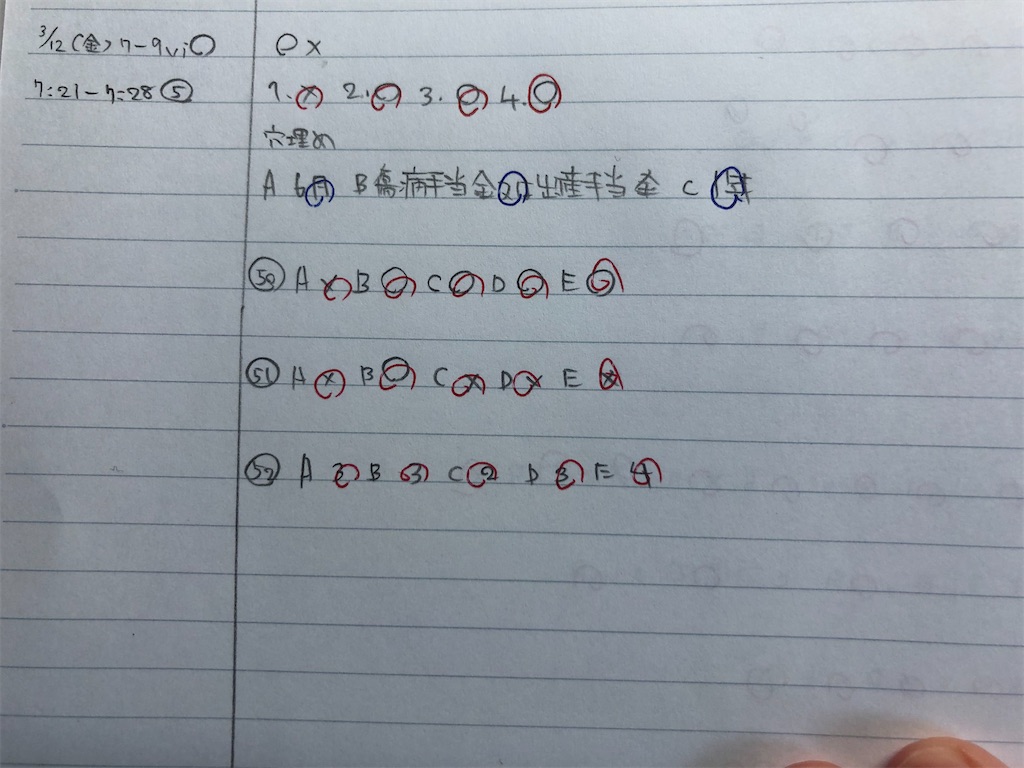 3/12(金) 7-9vi〇
〇×
7:21-7:28 ⑤
1.× 2.〇 3.〇 4.〇
穴埋め
A 6月 B 傷病手当金 出産手当金 C
㊿ A × B 〇 C 〇 D 〇 E 〇
51 A × B 〇 C × D × E ×
52 A 3 B 3 C 2 D 3 E 4